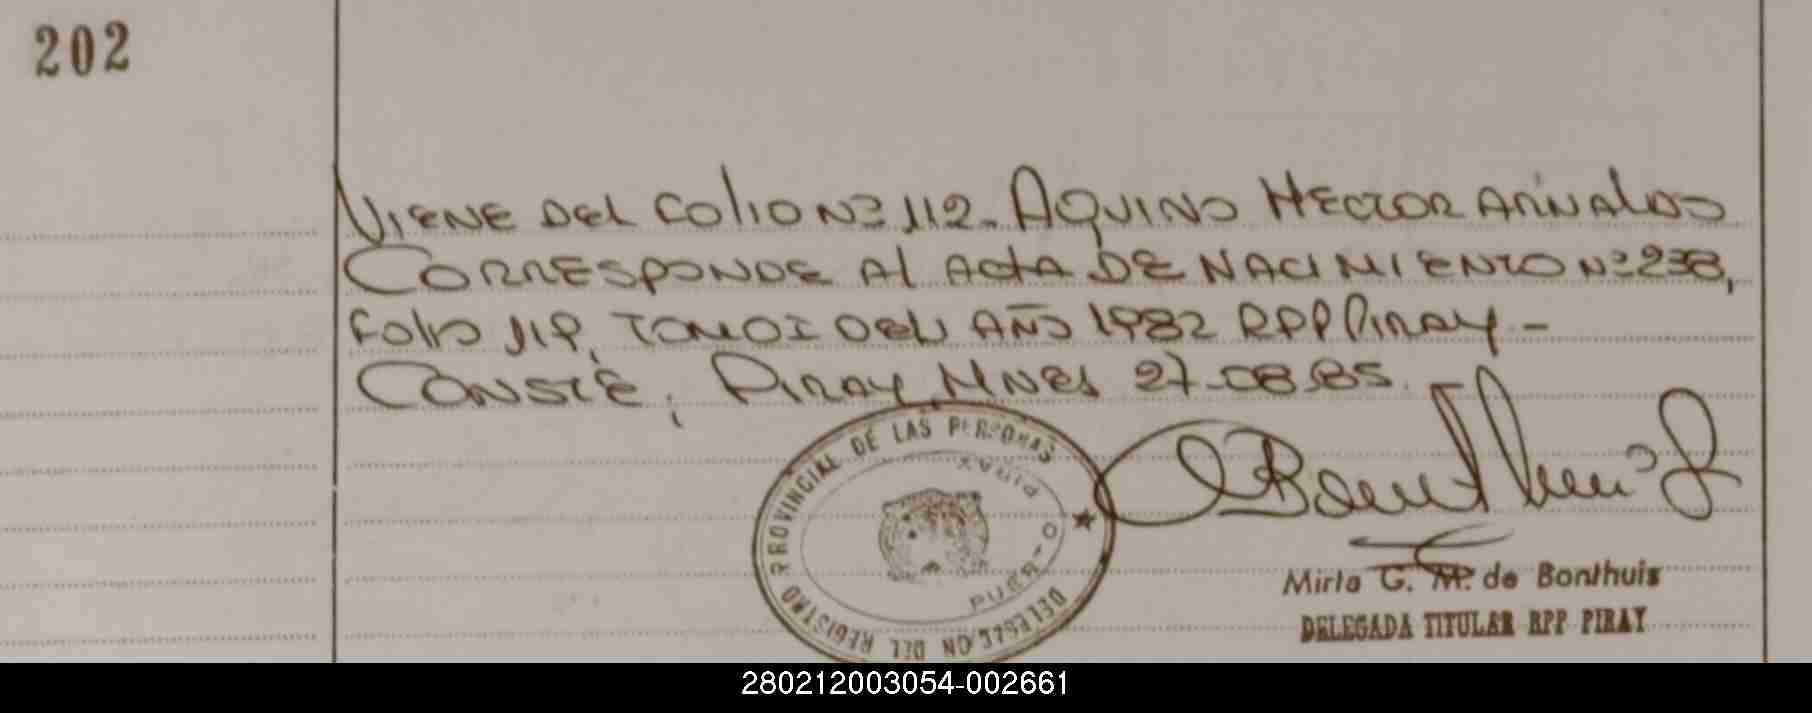 202
VIENE DEL FOLIO Nº 112. AQUINO HECTOR ARNALDO
CORRESPONDE AL ACTA DE NACIMIENTO Nº 238,
FOLIO 119, TOMO I DEL AÑO 1982 RPP PIRAY.-
CONSTE, PIRAY, MNES 27-08-85.
DELEGACION DEL REGISTRO PROVINCIAL DE LAS PERSONAS
PUERTO PIRAY
Mirta G. M. de Bonthuis
DELEGADA TITULAR RPP PIRAY
280212003054-002661